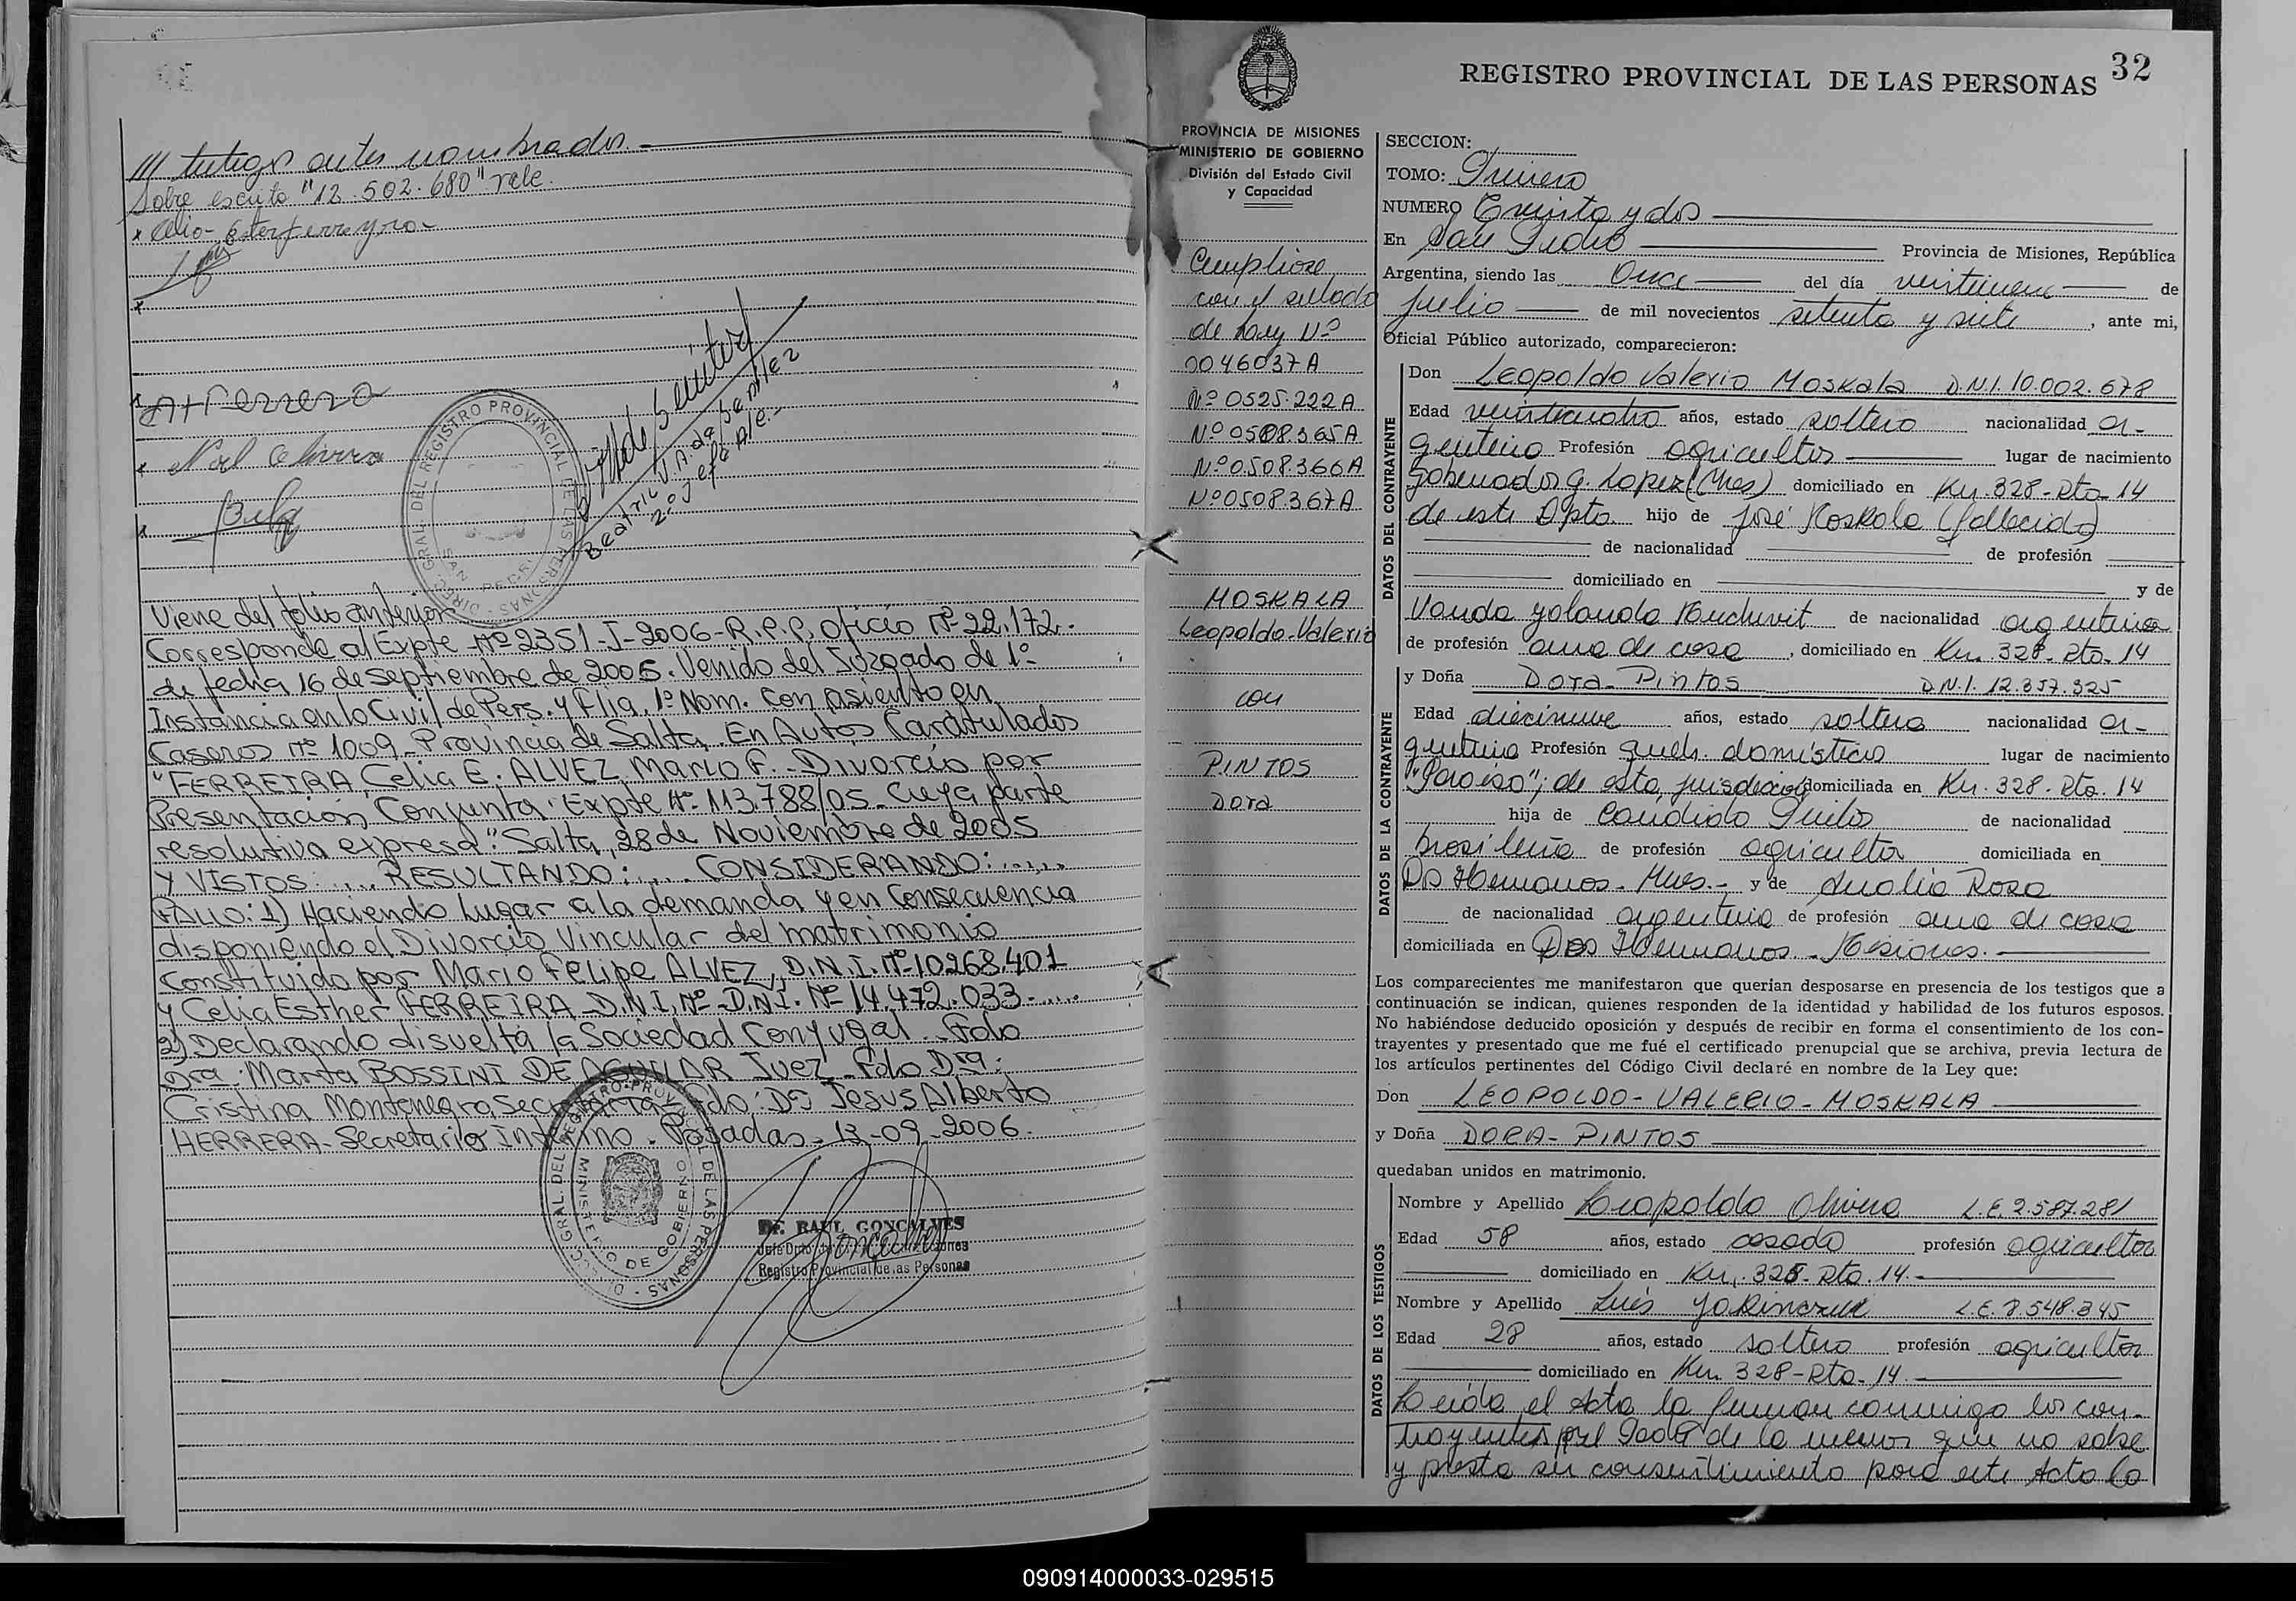 /// testigos antes nombrados.
Sobre escrito "12.502.680" vale.
Viene del folio anterior
Corresponde al Expte-Nº2351-J-2006-R.P.P. Oficio Nº22.172.
de fecha 16 de Septiembre de 2006. Venido del Juzgado de 1º
Instancia en lo Civil de Pers. y Flia. 1º Nom. Con Asiento en
Caseros nº 1009-Provincia de Salta. En Autos Caratulados
"FERREIRA, Celia E. ALVEZ Mario F. - Divorcio por
Presentación Conjunta" Expte Nº 113.788/05. Cuya parte
resolutiva expresa: "Salta, 28 de Noviembre de 2005
Y VISTOS: .... RESULTANDO: .... CONSIDERANDO: .....
FALLO: 1) Haciendo Lugar a la demanda y en Consecuencia
disponiendo el Divorcio Vincular del matrimonio
Constituido por Mario Felipe ALVEZ, D.N.I. Nº10268.401
y Celia Esther FERREIRA D.N.I. Nº-D.N.I. Nº 14.472.033.....
2) Declarando disuelta la Sociedad Conyugal. Fdo
Dra: Marta BOSSINI DE AGUILAR Juez - Fdo Dra:
Cristina Montenegro Secretaria - Fdo: Dr Jesus Alberto
HERRERA-Secretario Interino. Posadas-13-09-2006.
Beatriz J. A. de Benitez
2º Jefe
DIREC. GRAL. DEL REGISTRO PROVINCIAL DE LAS PERSONAS
SAN PEDRO
DIREC. GRAL. DEL REGISTRO PROVINCIAL DE LAS PERSONAS
MINISTERIO DE GOBIERNO
DE. RAUL GONCALVES
Registro Provincial de las Personas
REGISTRO PROVINCIAL DE LAS PERSONAS 32
PROVINCIA DE MISIONES
MINISTERIO DE GOBIERNO
División del Estado Civil
y Capacidad
Cumpliose
con el sellado
de Ley Nº
0046037A
Nº 0525.222A
Nº 0508.365A
Nº 0.508.366A
Nº 0508.367A
MOSKALA
Leopoldo-Valerio
con
PINTOS
Dora
SECCION:
TOMO: Primero
NUMERO Treinta y dos
En San Pedro Provincia de Misiones, República
Argentina, siendo las Once del día veintinueve de
julio de mil novecientos setenta y siete, ante mi,
Oficial Público autorizado, comparecieron:
DATOS DEL CONTRAYENTE
Don Leopoldo Valerio Moskala D.N.I. 10.002.678
Edad veinticuatro años, estado soltero nacionalidad ar-
gentino Profesión agricultor lugar de nacimiento
Gobernador G. Lopez (Mnes) domiciliado en Km. 328-Rta-14
de este Dpto. hijo de José Moskala (fallecido)
de nacionalidad de profesión
domiciliado en y de
Vanda Yolanda de nacionalidad argentina
de profesión ama de casa, domiciliado en Km. 328-Rta-14
DATOS DE LA CONTRAYENTE
y Doña Dora-Pintos D.N.I. 12.857.325
Edad diecinueve años, estado soltera nacionalidad ar-
gentina Profesión queh. domésticos lugar de nacimiento
"Paraiso"; de esta jurisdicción domiciliada en Km. 328-Rta. 14
hija de Candido Pintos de nacionalidad
brasileña de profesión agricultor domiciliada en
Dos Hermanas-Mnes.- y de Amalia Rosa
de nacionalidad argentina de profesión ama de casa
domiciliada en Dos Hermanas-Misiones.-
Los comparecientes me manifestaron que querían desposarse en presencia de los testigos que a
continuación se indican, quienes responden de la identidad y habilidad de los futuros esposos.
No habiéndose deducido oposición y después de recibir en forma el consentimiento de los con-
trayentes y presentado que me fué el certificado prenupcial que se archiva, previa lectura de
los artículos pertinentes del Código Civil declaré en nombre de la Ley que:
Don LEOPOLDO-VALERIO-MOSKALA
y Doña DORA-PINTOS
quedaban unidos en matrimonio.
DATOS DE LOS TESTIGOS
Nombre y Apellido Leopoldo Olivera L.E. 2.587.281
Edad 58 años, estado casado profesión agricultor
domiciliado en Km. 328-Rta. 14.-
Nombre y Apellido Luis L.E. 8.548.345
Edad 28 años, estado soltero profesión agricultor
domiciliado en Km. 328-Rta-14.-
Leida el Acta la firman conmigo los con-
trayentes, el Padre de la menor que no sabe
y presta su consentimiento para este Acto lo
090914000033-029515